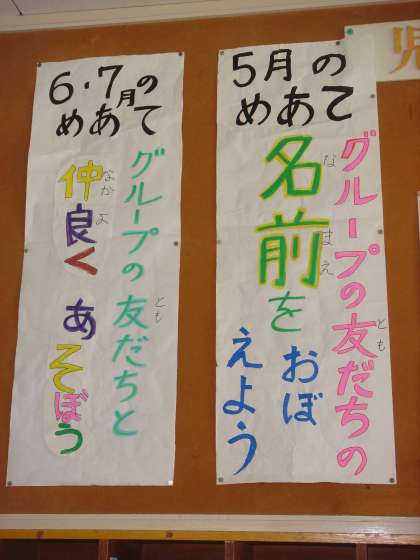 児
5月の
めあて
グループの友だちの
とも
名前を
なまえ
おぼ
えよう
6・7月の
めあて
グループの友だちと
とも
仲良く
なかよ
あそぼう